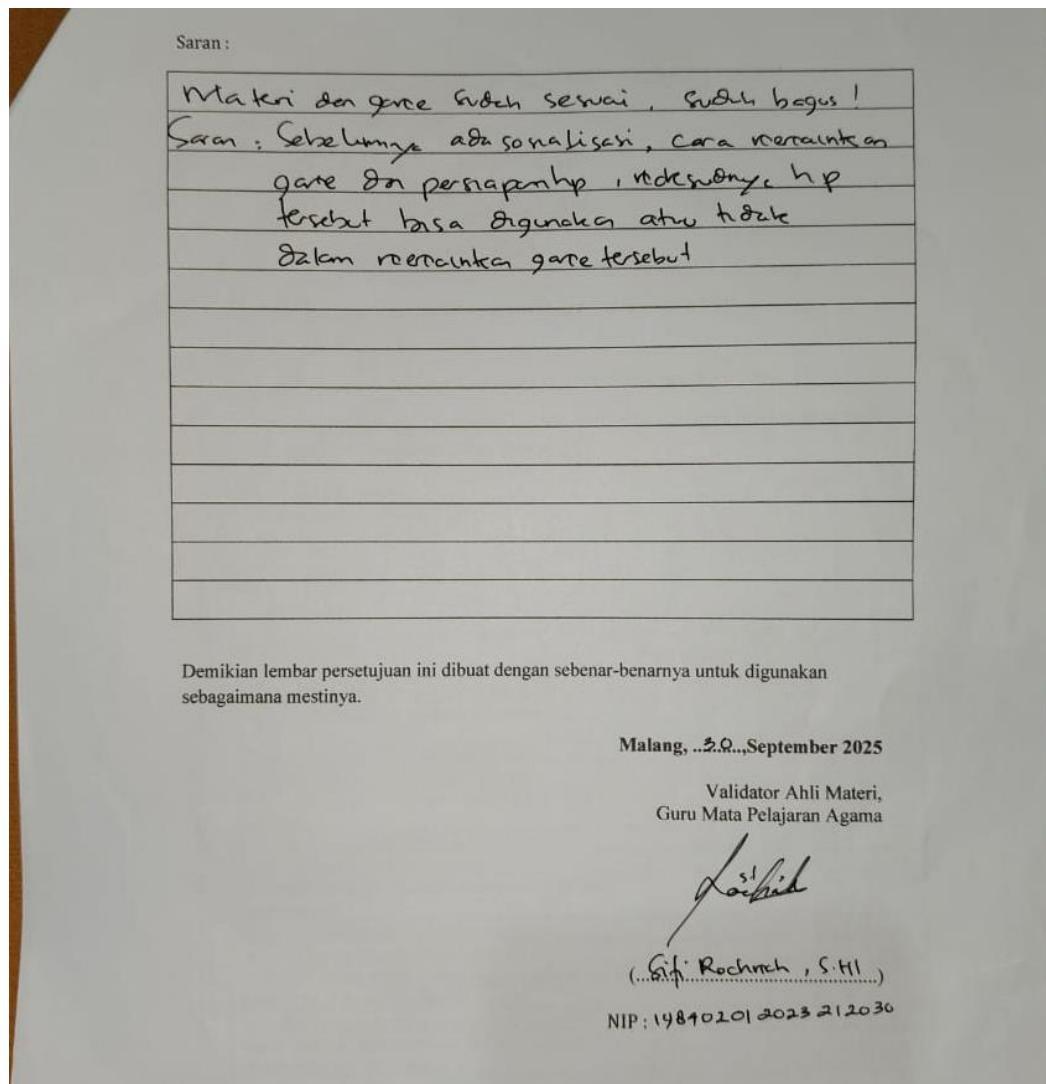 Saran :
Materi dan game sudah sesuai, sudah bagus !
Saran : Sebelumnya ada sosialisasi, cara memainkan
game dan persiapan hp, maksudnya hp
tersebut bisa digunakan atau tidak
dalam memainkan game tersebut
Demikian lembar persetujuan ini dibuat dengan sebenar-benarnya untuk digunakan
sebagaimana mestinya.
Malang, ..30..,September 2025
Validator Ahli Materi,
Guru Mata Pelajaran Agama
(...Siti Rochmah, S.HI...)
NIP : 19840201 2023 212030